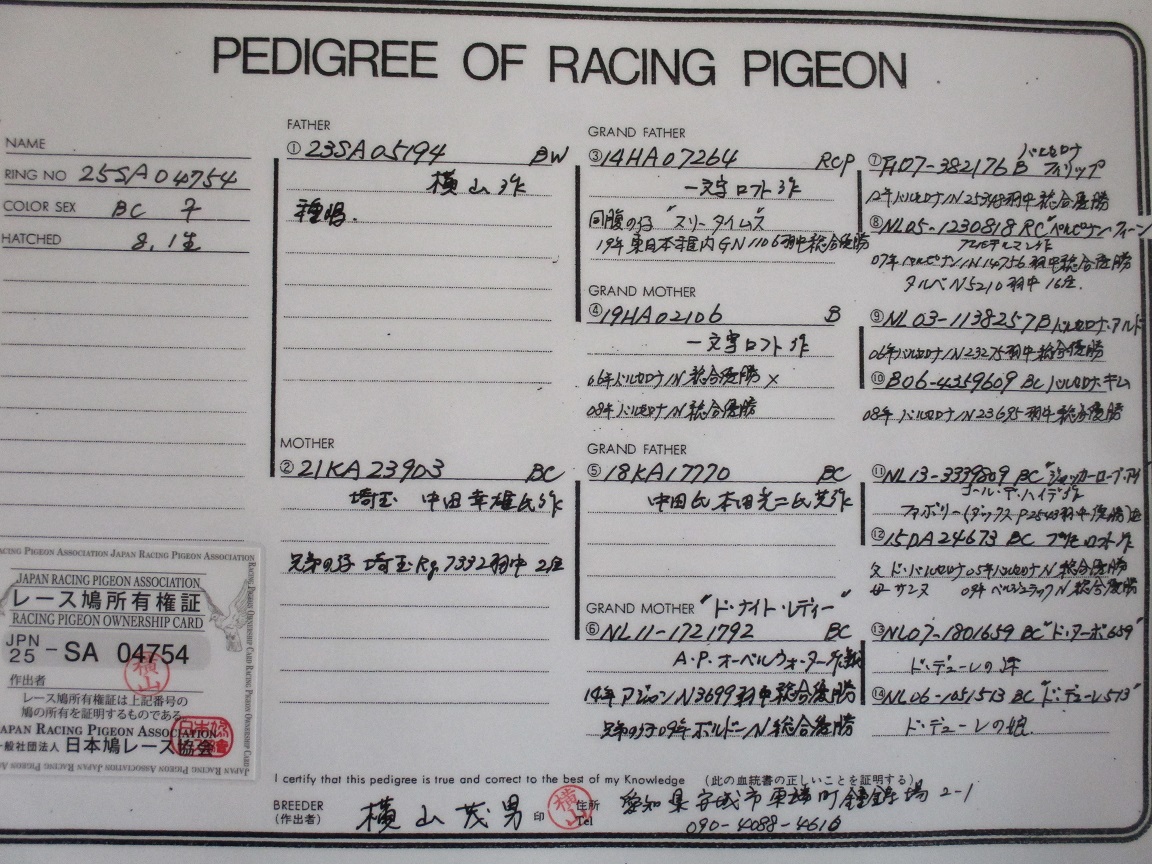 PEDIGREE OF RACING PIGEON
NAME
RING NO 25SA04754
COLOR SEX BC ♀
HATCHED 8.1生
FATHER
① 23SA05194 BW
横山作
種鳩.
MOTHER
② 21KA23903 BC
埼玉 中田幸雄氏作
兄弟の仔 埼玉Rg 7332羽中 2位
GRAND FATHER
③ 14HA07264 RCP
一文字ロフト作
同腹の仔 "スリータイムス"
19年東日本稚内GN 1106羽中総合優勝
GRAND MOTHER
④ 19HA02106 B
一文字ロフト作
06年バルセロナIN総合優勝 ×
08年バルセロナIN総合優勝
GRAND FATHER
⑤ 18KA17770 BC
中田氏 本田 氏 作
GRAND MOTHER "ド・ナイト・レディー"
⑥ NL11-1721792 BC
A.P.オーベルウォーター作
14年アジャンN3699羽中総合優勝
兄弟の仔09年ボルドーN総合優勝
⑦ 07-382176 B バルセロナ フィリップ
12年バルセロナIN 25343羽中総合優勝
⑧ NL05-1230818 RC "ペルピナンクィーン
07年ペルピナンIN 14756羽中総合優勝
タルベN5210羽中16位.
⑨ NL03-1138257 B バルセロナ・アルド
06年バルセロナIN23275羽中総合優勝
⑩ B06-4359609 BC バルセロナ・キム
08年 バルセロナIN23695羽中総合優勝
⑪ NL13-3339809 BC
ファボリー(ダックスP2543羽中優勝)
⑫ 15DA24673 BC ロフト作
父 ド・バルセロナ 05年バルセロナN総合優勝
母 サンヌ 09年ベルジュラックN総合優勝
⑬ NL07-1801659 BC "ド・ターボ659"
ド・デューレの
⑭ NL06-1051513 BC "ド・デューレ513"
ド・デューレの娘.
RACING PIGEON ASSOCIATION JAPAN RACING PIGEON ASSOCIATION
JAPAN RACING PIGEON ASSOCIATION
レース鳩所有権証
RACING PIGEON OWNERSHIP CARD
JPN 25 - SA 04754
作出者
横山
レース鳩所有権証は上記番号の
鳩の所有を証明するものである。
JAPAN RACING PIGEON ASSOCIATION
一般社団法人 日本鳩レース協会
I certify that this pedigree is true and correct to the best of my Knowledge (此の血統書の正しいことを証明する)
BREEDER
(作出者) 横山茂男 印 横山
住所 愛知県安城市東端町 場2-1
Tel 090-4088-4610